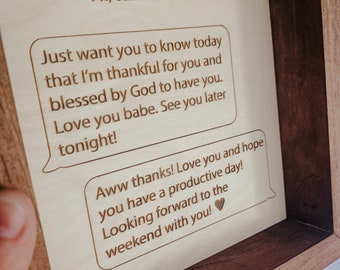 Just want you to know today
that I'm thankful for you and
blessed by God to have you.
Love you babe. See you later
tonight!
Aww thanks! Love you and hope
you have a productive day!
Looking forward to the
weekend with you! ♥